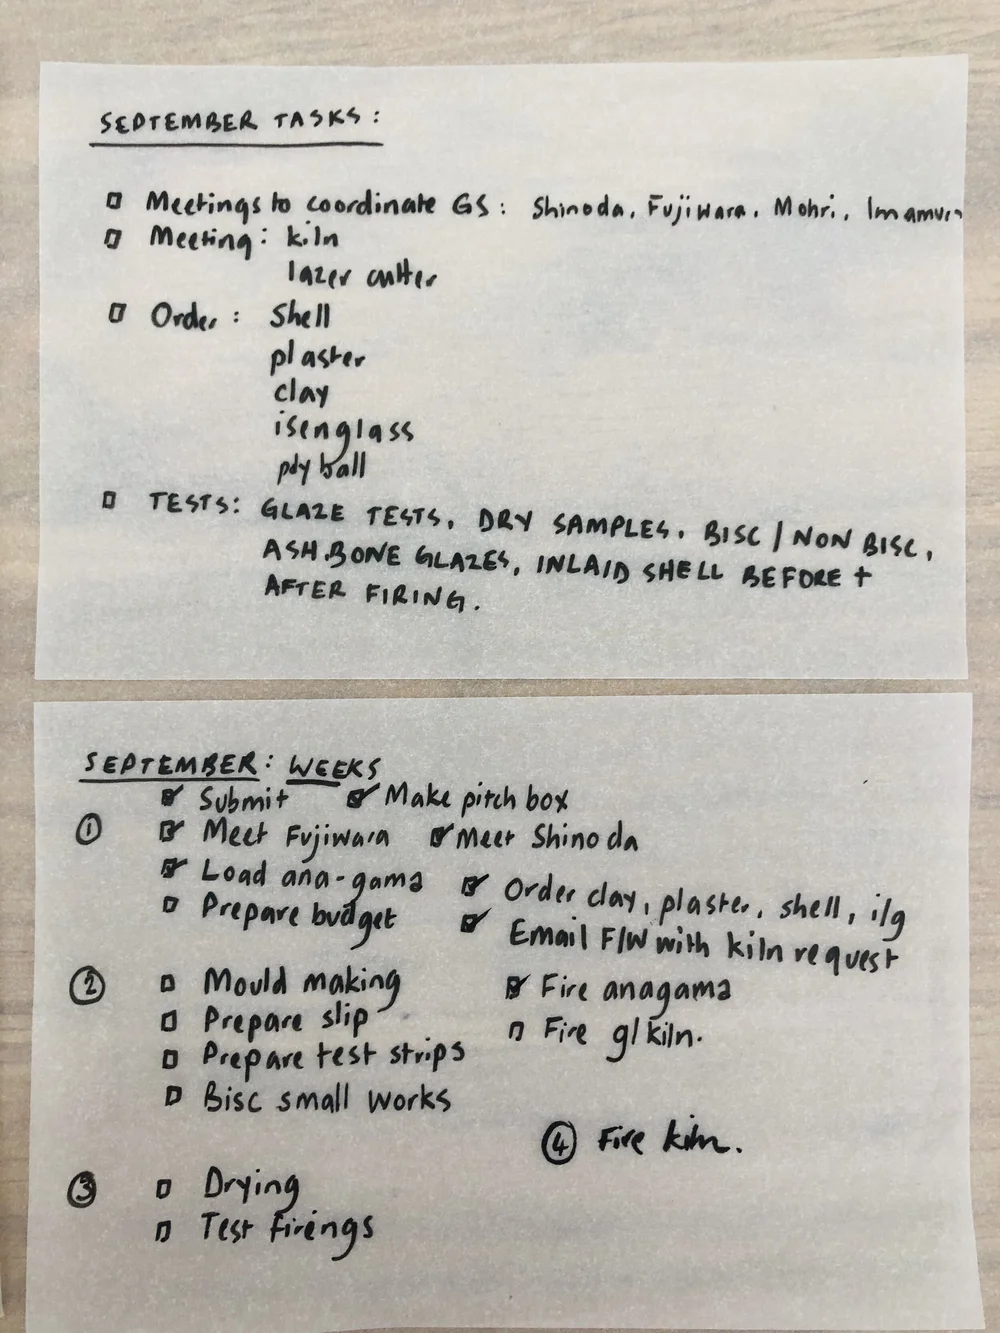 SEPTEMBER TASKS:
Meetings to coordinate GS: Shinoda, Fujiwara, Mohri, Imamura
Meeting: kiln
lazer cutter
Order: Shell
plaster
clay
isenglass
ball
TESTS: GLAZE TESTS, DRY SAMPLES, BISC / NON BISC,
ASH.BONE GLAZES, INLAID SHELL BEFORE +
AFTER FIRING.
SEPTEMBER: WEEKS
Submit Make pitch box
① Meet Fujiwara Meet Shinoda
Load ana-gama Order clay, plaster, shell, i/g
Prepare budget Email F/W with kiln request
② Mould making Fire anagama
Prepare slip Fire gl kiln.
Prepare test strips
Bisc small works
④ Fire kiln.
③ Drying
Test firings